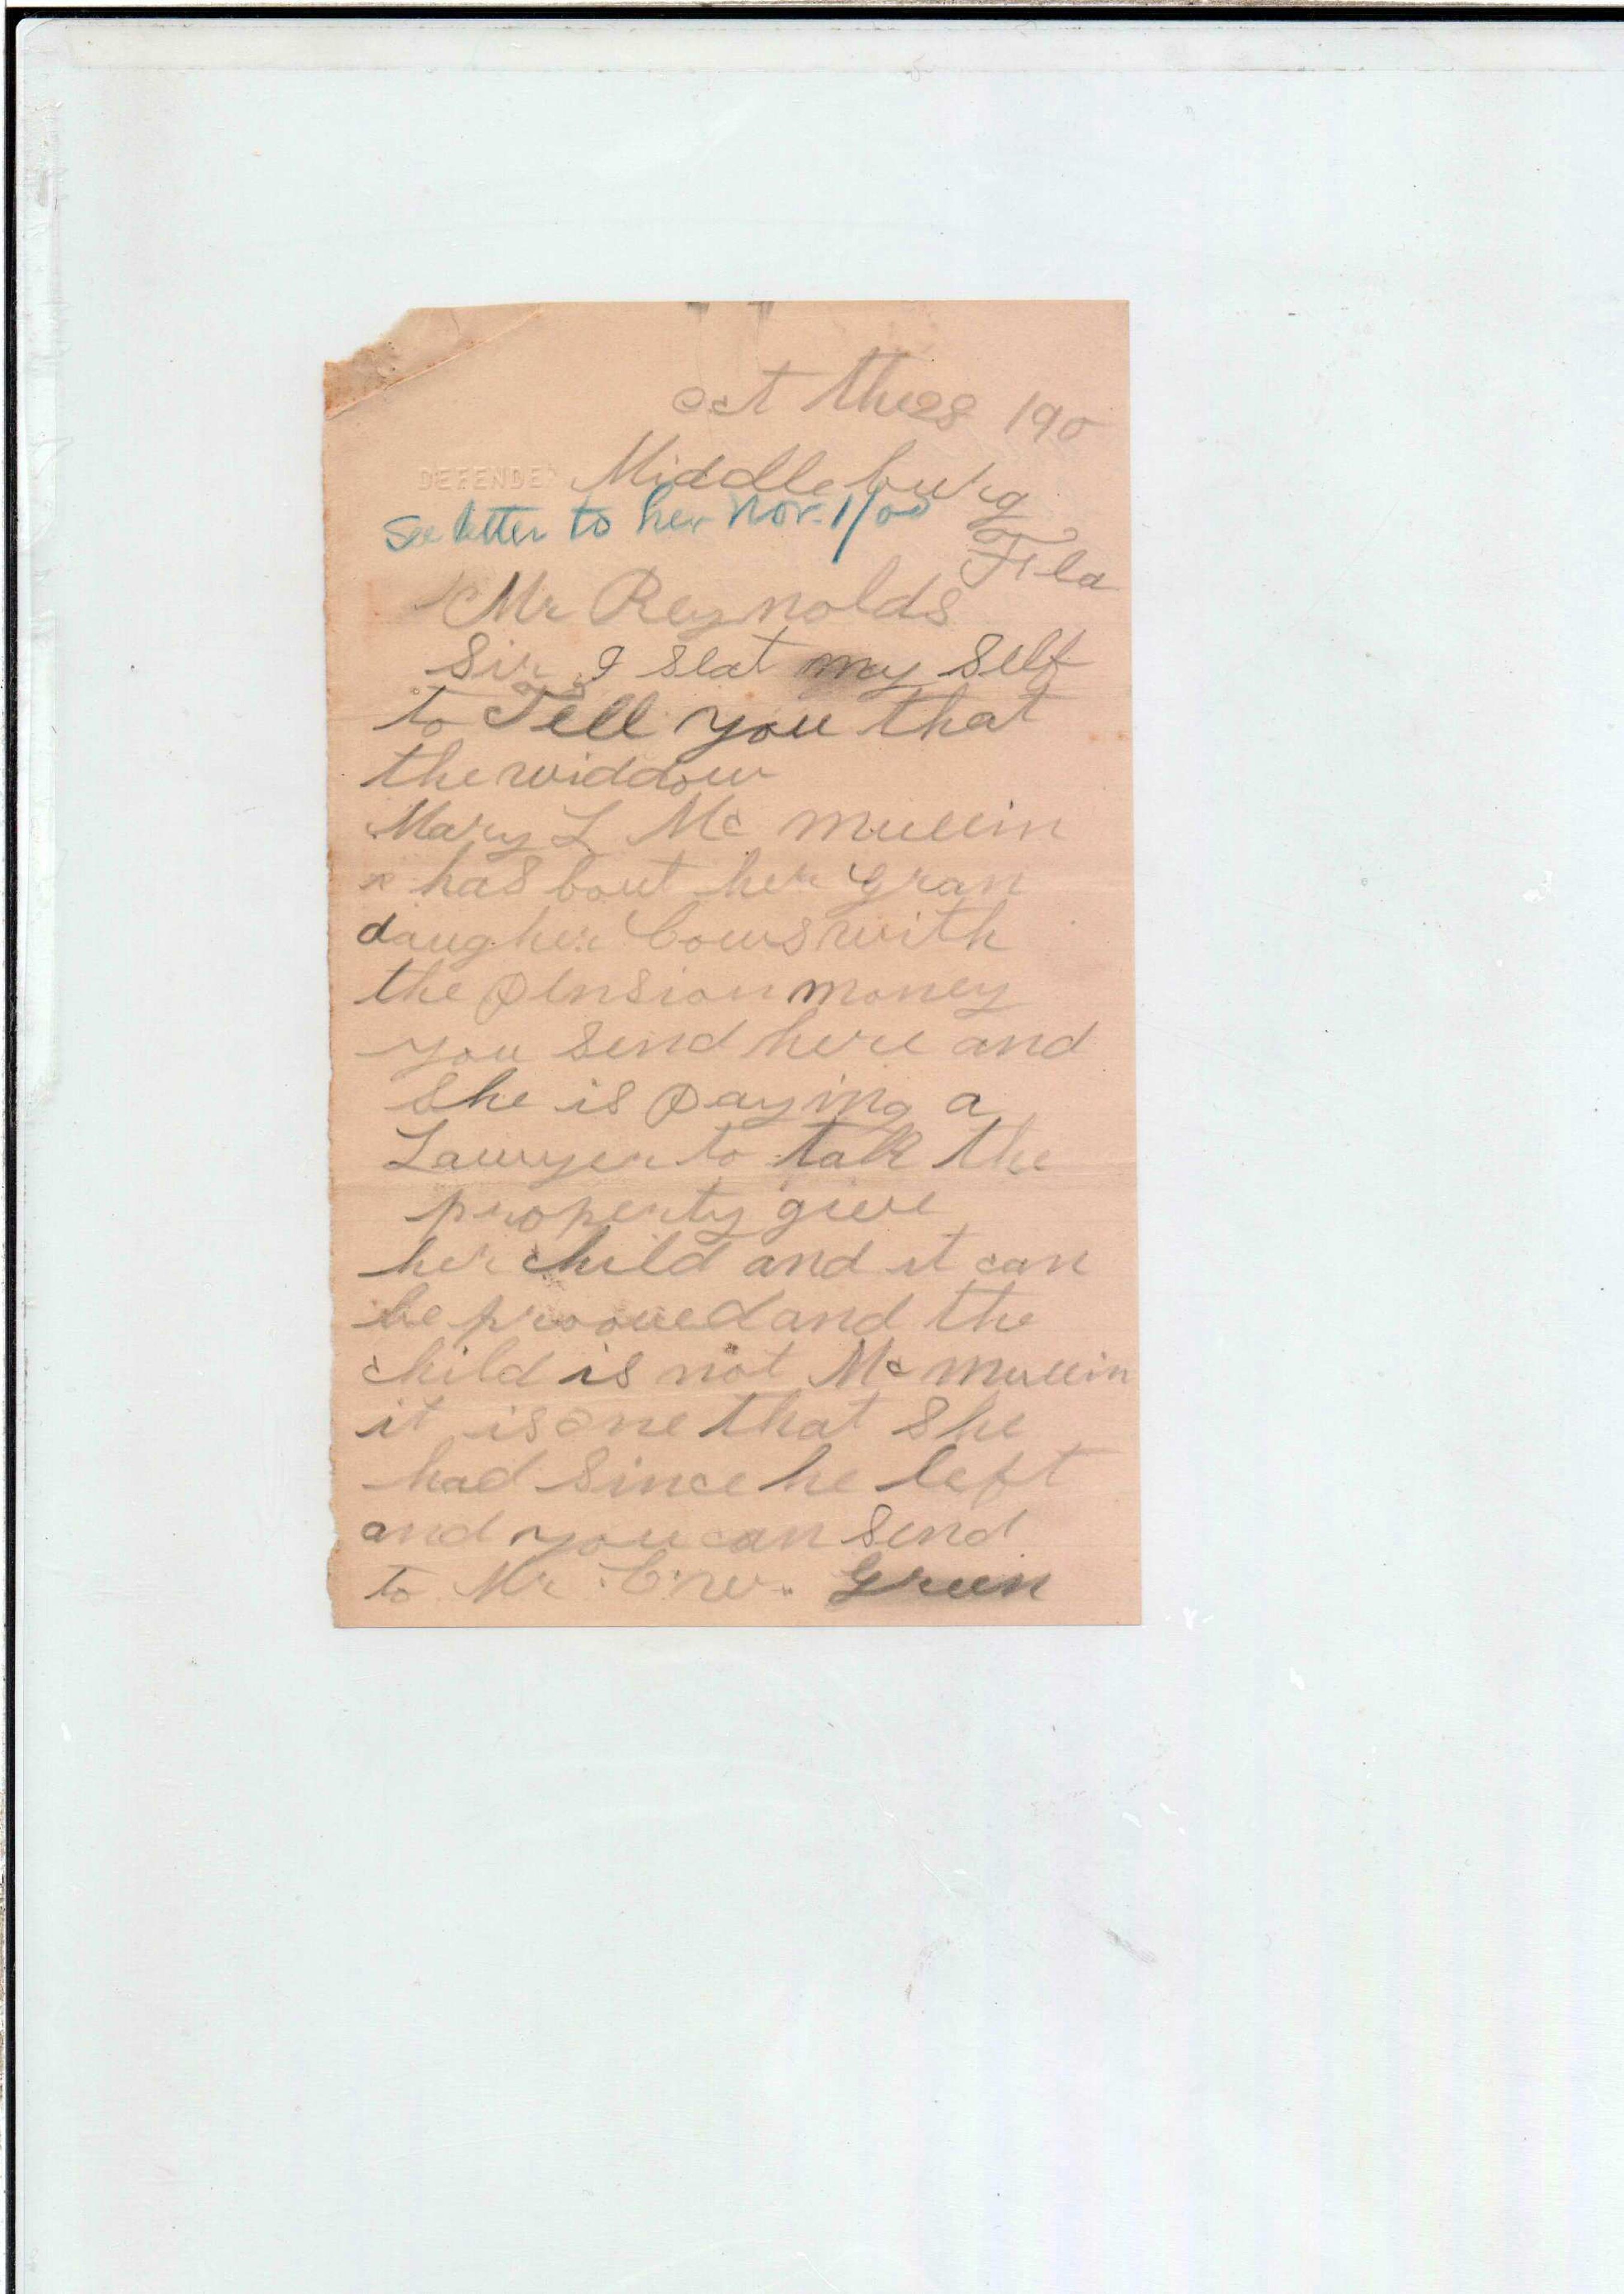 oct the 28 190
DEFENDER Middleburg
See letter to her Nov. 1/00
Fla
Mr Reynolds
Sir I seat my self
to Tell you that
the widdow
Mary L Mc mullin
has bout her gran
daugher Cows with
the pension money
you send here and
she is paying a
Lawyer to talk the
property give
her child and it can
be prooved and the
child is not Mc mullin
it is one that she
had since he left
and you can send
to Mr C. W. Green